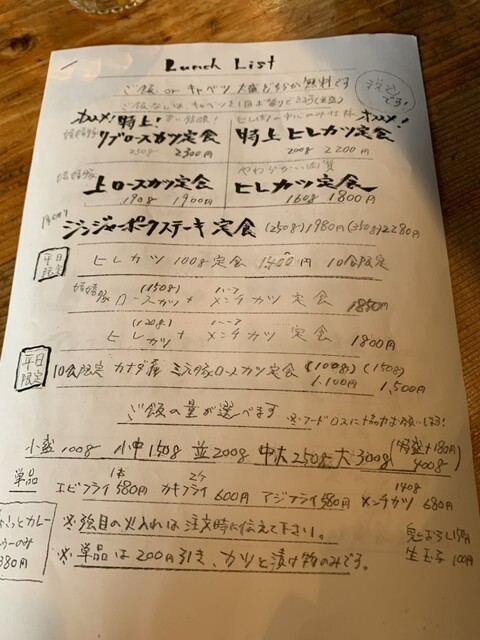 Lunch List
ご飯 or キャベツ 大盛どちらか無料です
税込です!
オススメ! 特上!
リブロースカツ定食
250g 2300円
オススメ!
特上 ヒレカツ定食
200g 2200円
上ロースカツ定食
190g 1900円
やわらかい
ヒレカツ定食
160g 1800円
ジンジャーポークステーキ定食 (250g) 1980円 (350g) 2280円
平日限定
ヒレカツ 100g 定食 1400円 10食限定
(150g) ハーフ
ロースカツ + メンチカツ 定食 1850円
(120g) ハーフ
ヒレカツ + メンチカツ 定食 1800円
平日限定
10食限定 カナダ産 三元豚ロースカツ定食 (100g) 1,100円 (150g) 1,500円
ご飯の量が選べます ※フードロスに協力お願いします!
小盛 100g 小中 150g 並 200g 中大 250g 大 300g (特盛+180円 400g)
単品
エビフライ 1本 580円 カキフライ 2ケ 600円 アジフライ 580円 メンチカツ 140g 680円
ちょこっとカレー
ルーのみ
380円
※強目の火入れは注文時に伝えて下さい。
※単品は200円引き、カツと漬け物のみです。
鬼おろし 150円
生玉子 100円